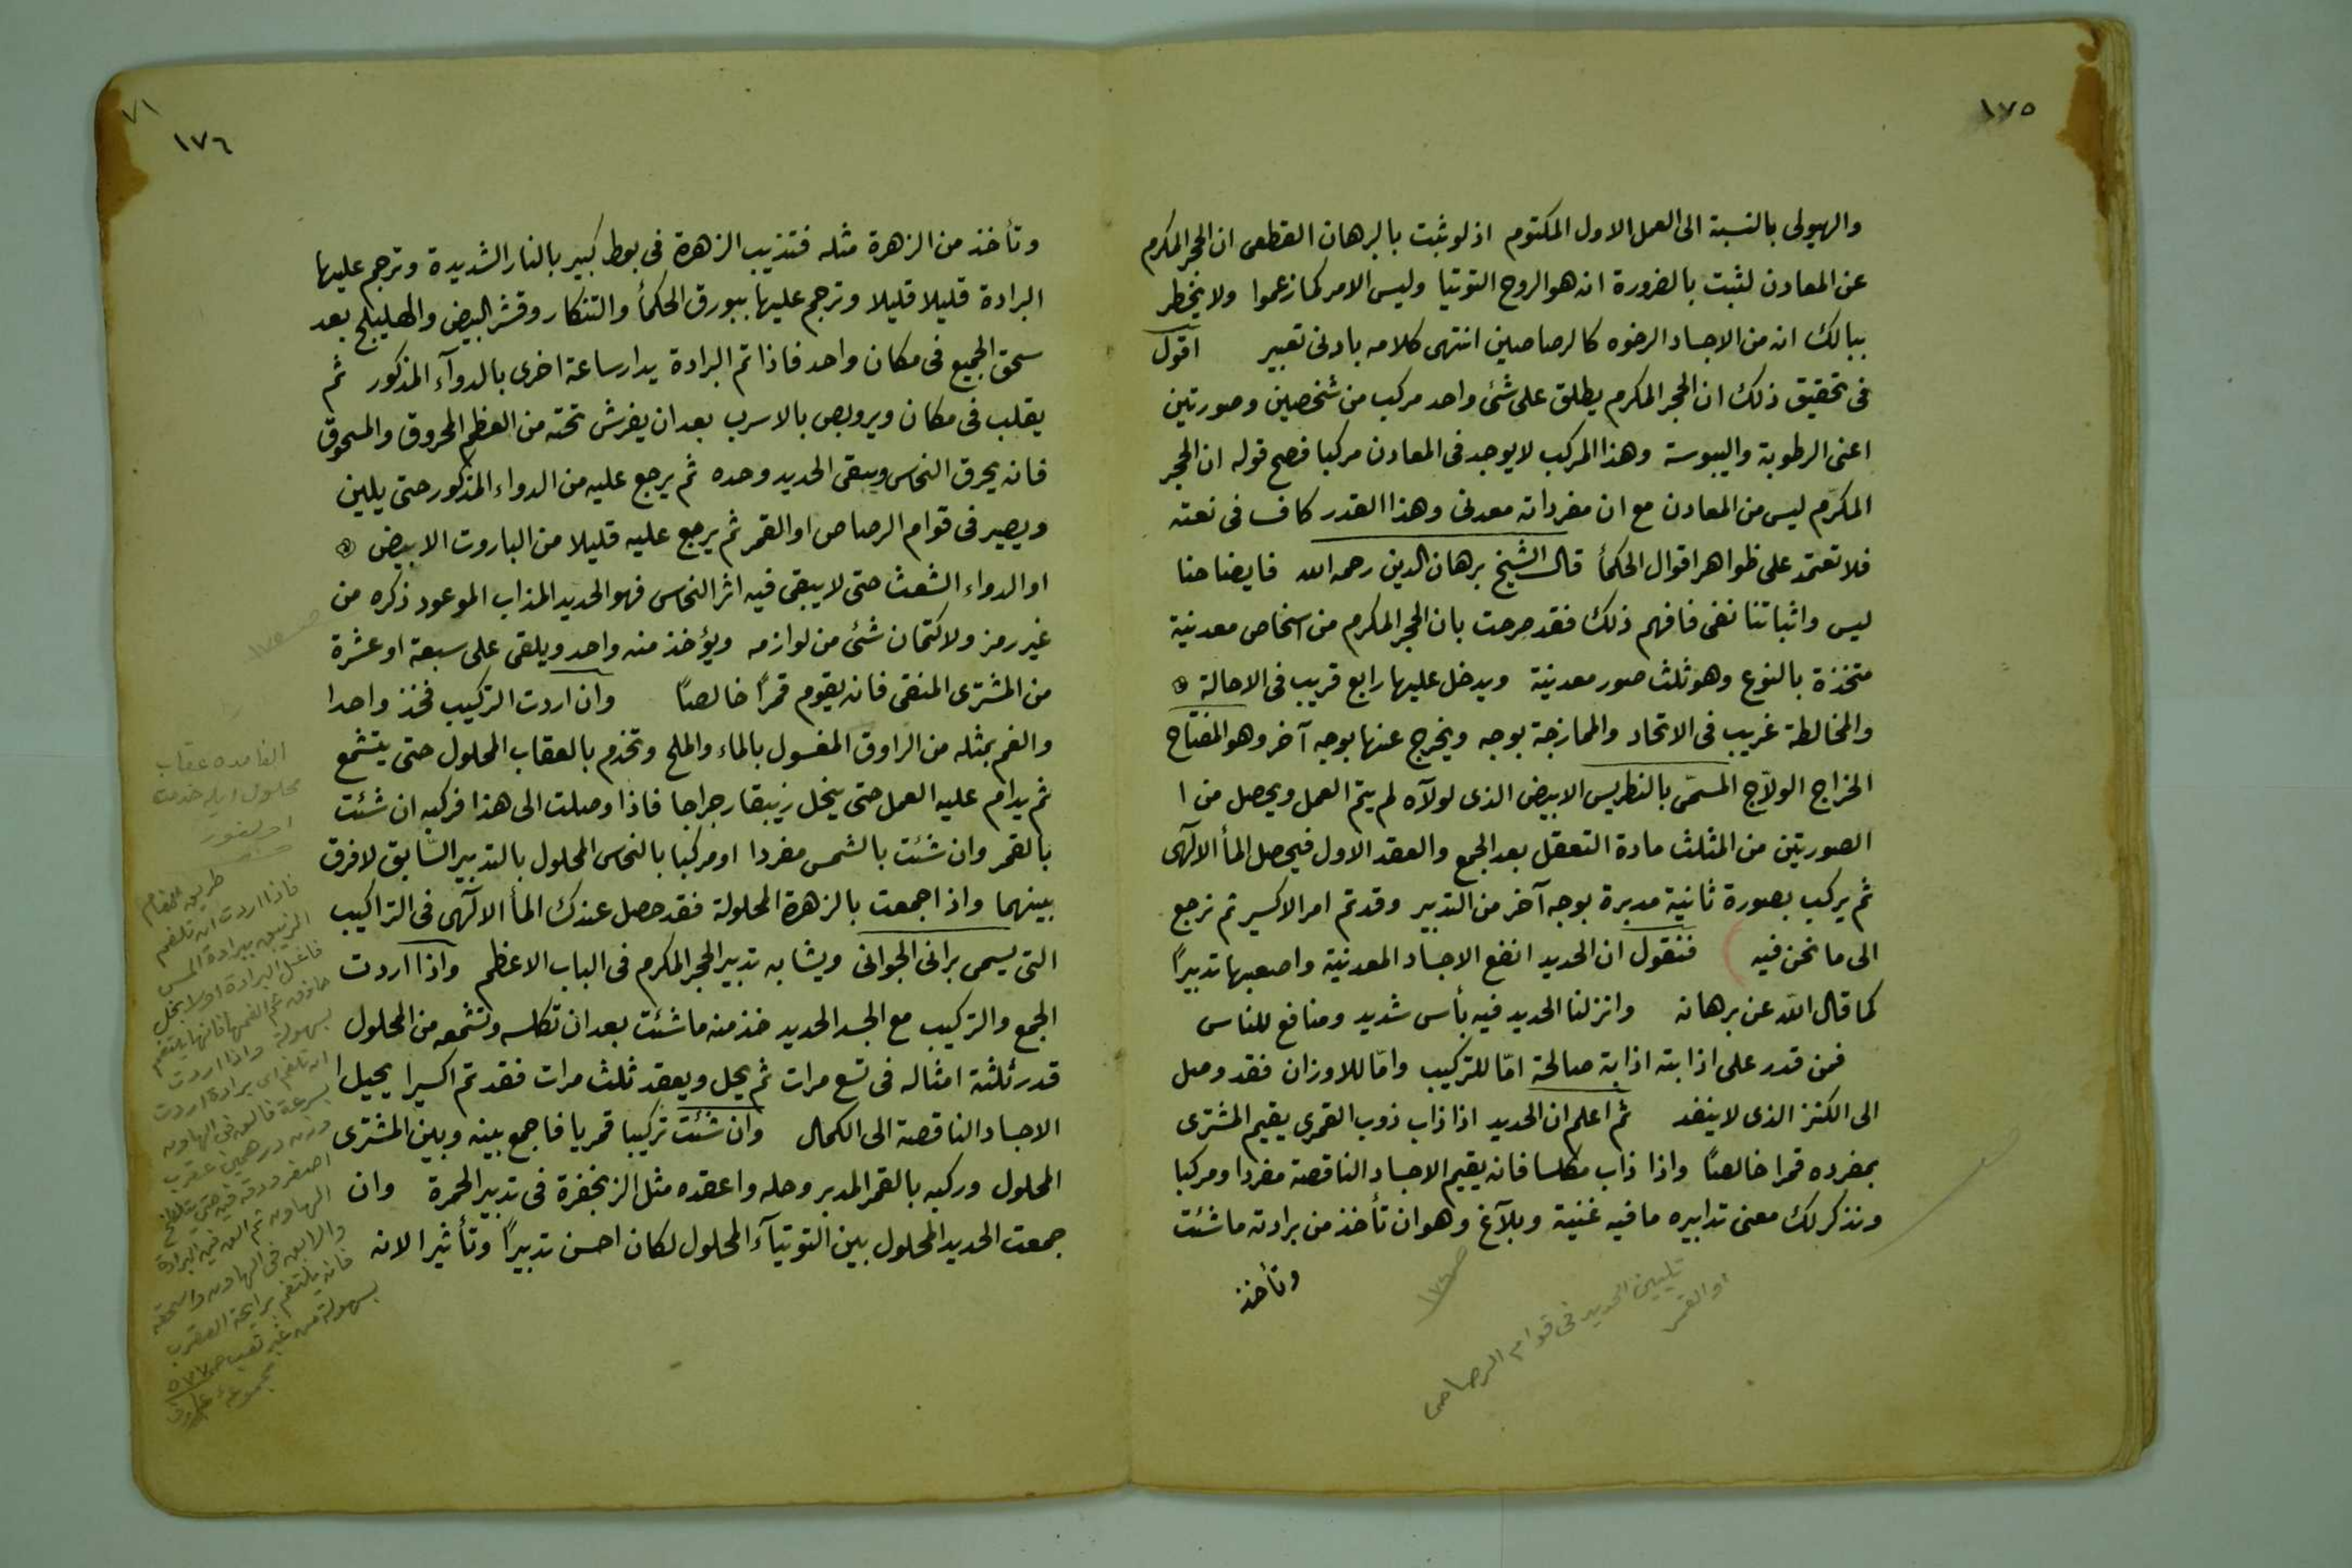 ١٧٥
والهيولى بالنسبة الى العمل الاول المكتوم اذ لو ثبت بالبرهان القطعى ان الحجر المكرم
عن المعادن لثبت بالضرورة انه هو الروح التوتيا وليس الامر كما زعموا ولا يخطر
ببالك انه من الاجساد الرخوه كالرصاصين انتهى كلامه بادنى تغيير اقول
فى تحقيق ذلك ان الحجر المكرم يطلق على شئ واحد مركب من شخصين وصورتين
اعنى الرطوبة واليبوسة وهذا المركب لا يوجد فى المعادن مركبا فصح قوله ان الحجر
المكرّم ليس من المعادن مع ان مفرداته معدنى وهذا القدر كاف فى نعته
فلا تعتمد على ظواهر اقوال الحكمأ قال الشيخ برهان الدين رحمه الله فايضاحنا
ليس واثباتنا نفى فافهم ذلك فقد صرحت بان الحجر المكرم من اشخاص معدنية
متخذة بالنوع وهو ثلث صور معدنية ويدخل عليها رابع قريب فى الاحالة
والمخالطة غريب فى الاتحاد والممازجة بوجه ويخرج عنها بوجه آخر وهو المفتاح
الخراج الولاّج المسمّى بالنطريس الابيض الذى لولآه لم يتم العمل ويحصل من ا
الصورتين من المثلث مادة التعقل بعد الجمع والعقد الاول فيحصل المأ الالٓهى
ثم يركب بصورة ثانية مدبرة بوجه آخر من التدبير وقد تم امر الاكسير ثم نرجع
الى ما نحن فيه فنقول ان الحديد انفع الاجساد المعدنية واصعبها تدبيرًا
كما قال الله عن برهانه وانزلنا الحديد فيه بأس شديد ومنافع للناس
فمن قدر على اذابته اذابة صالحة امّا للتركيب وامّا للاوزان فقد وصل
الى الكنز الذى لا ينفد ثم اعلم ان الحديد اذا ذاب ذوب القمرى يقيم المشترى
بمفرده قمرا خالصًا واذا ذاب مكلسا فانه يقيم الاجساد الناقصة مفردا ومركبا
ونذكر لك معنى تدابيره ما فيه غنية وبلآغ وهو ان تأخذ من برادته ما شئت
وتأخذ
صـ ١٧٦
تليين الحديد فى قوام الرصاص
او القمر
٧١
١٧٦
وتأخذ من الزهرة مثله فتذيب الزهرة فى بوط كبير بالنار الشديدة وترجم عليها
البرادة قليلا قليلا وترجم عليها ببورق الحكمأ والتنكار وقشر البيض والهليلج بعد
سحق الجميع فى مكان واحد فاذا تم البرادة يدار ساعة اخرى بالدوآء المذكور ثم
يقلب فى مكان ويروبص بالاسرب بعد ان يفرش تحته من العظم المحروق والمسحوق
فانه يحرق النحاس ويبقى الحديد وحده ثم يرجع عليه من الدواء المذكور حتى يلين
ويصير فى قوام الرصاص او القمر ثم يرجع عليه قليلا من الباروت الابيض
او الدواء الشعث حتى لا يبقى فيه اثر النحاس فهو الحديد المذاب الموعود ذكره من
غير رمز ولا كتمان شئ من لوازمه ويؤخذ منه واحد ويلقى على سبعة او عشرة
من المشترى المنقى فانه يقوم قمرًا خالصًا وان اردت التركيب فخذ واحدا
والغم بمثله من الراوق المغسول بالماء والملح وتخدم بالعقاب المحلول حتى يتشمع
ثم يدام عليه العمل حتى ينحل زيبقا رجراجا فاذا وصلت الى هذا فركبه ان شئت
بالقمر وان شئت بالشمس مفردا او مركبا بالنحاس المحلول بالتدبير السّابق لا فرق
بينهما واذا جمعت بالزهرة المحلولة فقد حصل عندك المأ الالٓهى فى التراكيب
التى يسمى برانى الجوانى ويشابه تدبير الحجر المكرم فى الباب الاعظم واذا اردت
الجمع والتركيب مع الجسد الحديد خذ منه ما شئت بعد ان تكلسه وتشمعه من المحلول
قدر ثلثة امثاله فى تسع مرات ثم يحل ويعقد ثلث مرات فقد تم اكسيرا يحيل ا
الاجساد الناقصة الى الكمال وان شئت تركيبا قمريا فاجمع بينه وبين المشترى
المحلول وركبه بالقمر المدبر وحله واعقده مثل الزنجفرة فى تدبير الحمرة وان
جمعت الحديد المحلول بين التوتيآء المحلول لكان احسن تدبيرًا وتأثيرا لانه
صـ ١٧٥
الغامده عقاب
محلول ايله خدمت
فاذا اردت ان تلغم
الزيبق ببرادة المس
فاغسل البرادة اولا بخل
حاذق ثم الغمها فانها يلتغم
بسهولة واذا اردت
ان تلغم اى برادة اردت
بسرعة فالق فى الهاون
وزن درهمين عقرب
اصفر ودقه فيه حتى يتلطخ
الهاون ثم الق فيه البرادة
والزيبق فى الهاون واسحقه
فانه يلتغم برايحة العقرب
بسهولة من غير تعب صـ ٥٧٧